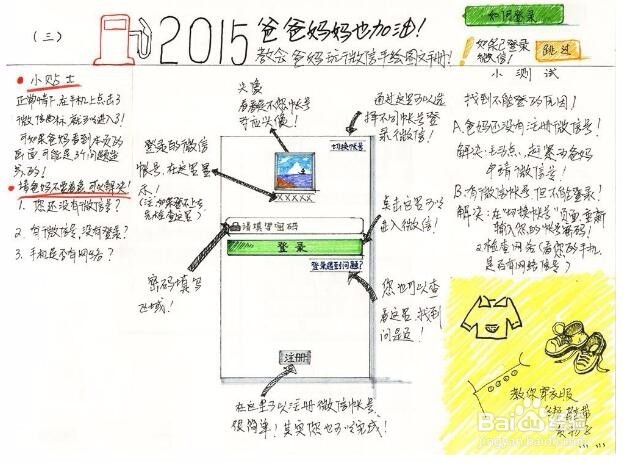 (三)
2015爸爸妈妈也加油!
教会爸妈玩手微信手绘图文手册!
如何登录
如您已登录
微信!
跳过
小贴士
正常情下,在手机上点击了
微信图标,就可以进入了!
可如果爸妈看到本页的
画面,可能是3个问题造
成的!
请爸妈不要着急,可以解决!
1. 您还没有微信号?
2. 有微信号,没有登录?
3. 手机是否有网络?
头像
看看是不是您帐号
对应头像!
登录的微信
帐号,在这里显
示!
(注:如果登不上去
先检查这里)
密码填写
区域!
切换帐号
XXXXX
请填写密码
登录
登录遇到问题?
注册
通过这里可以选
择不同帐号登
录微信!
点击这里可以
进入微信!
您也可以查
看这里,找到
问题是!
在这里可以注册微信帐号,
很简单!其实您也可以完成!
小测试
找到不能登的原因!
A.爸妈还没有注册微信号!
解决:手动点,赶紧为爸妈
申请微信号!
B.有微信帐号,但不能登录!
解决:在"切换帐号"页面,重新
输入您的帐号密码!
2.检查网络(看您的手机
是否有网络信号?)
教你穿衣服
系鞋带
Baidu经验
jingyan.baidu.com